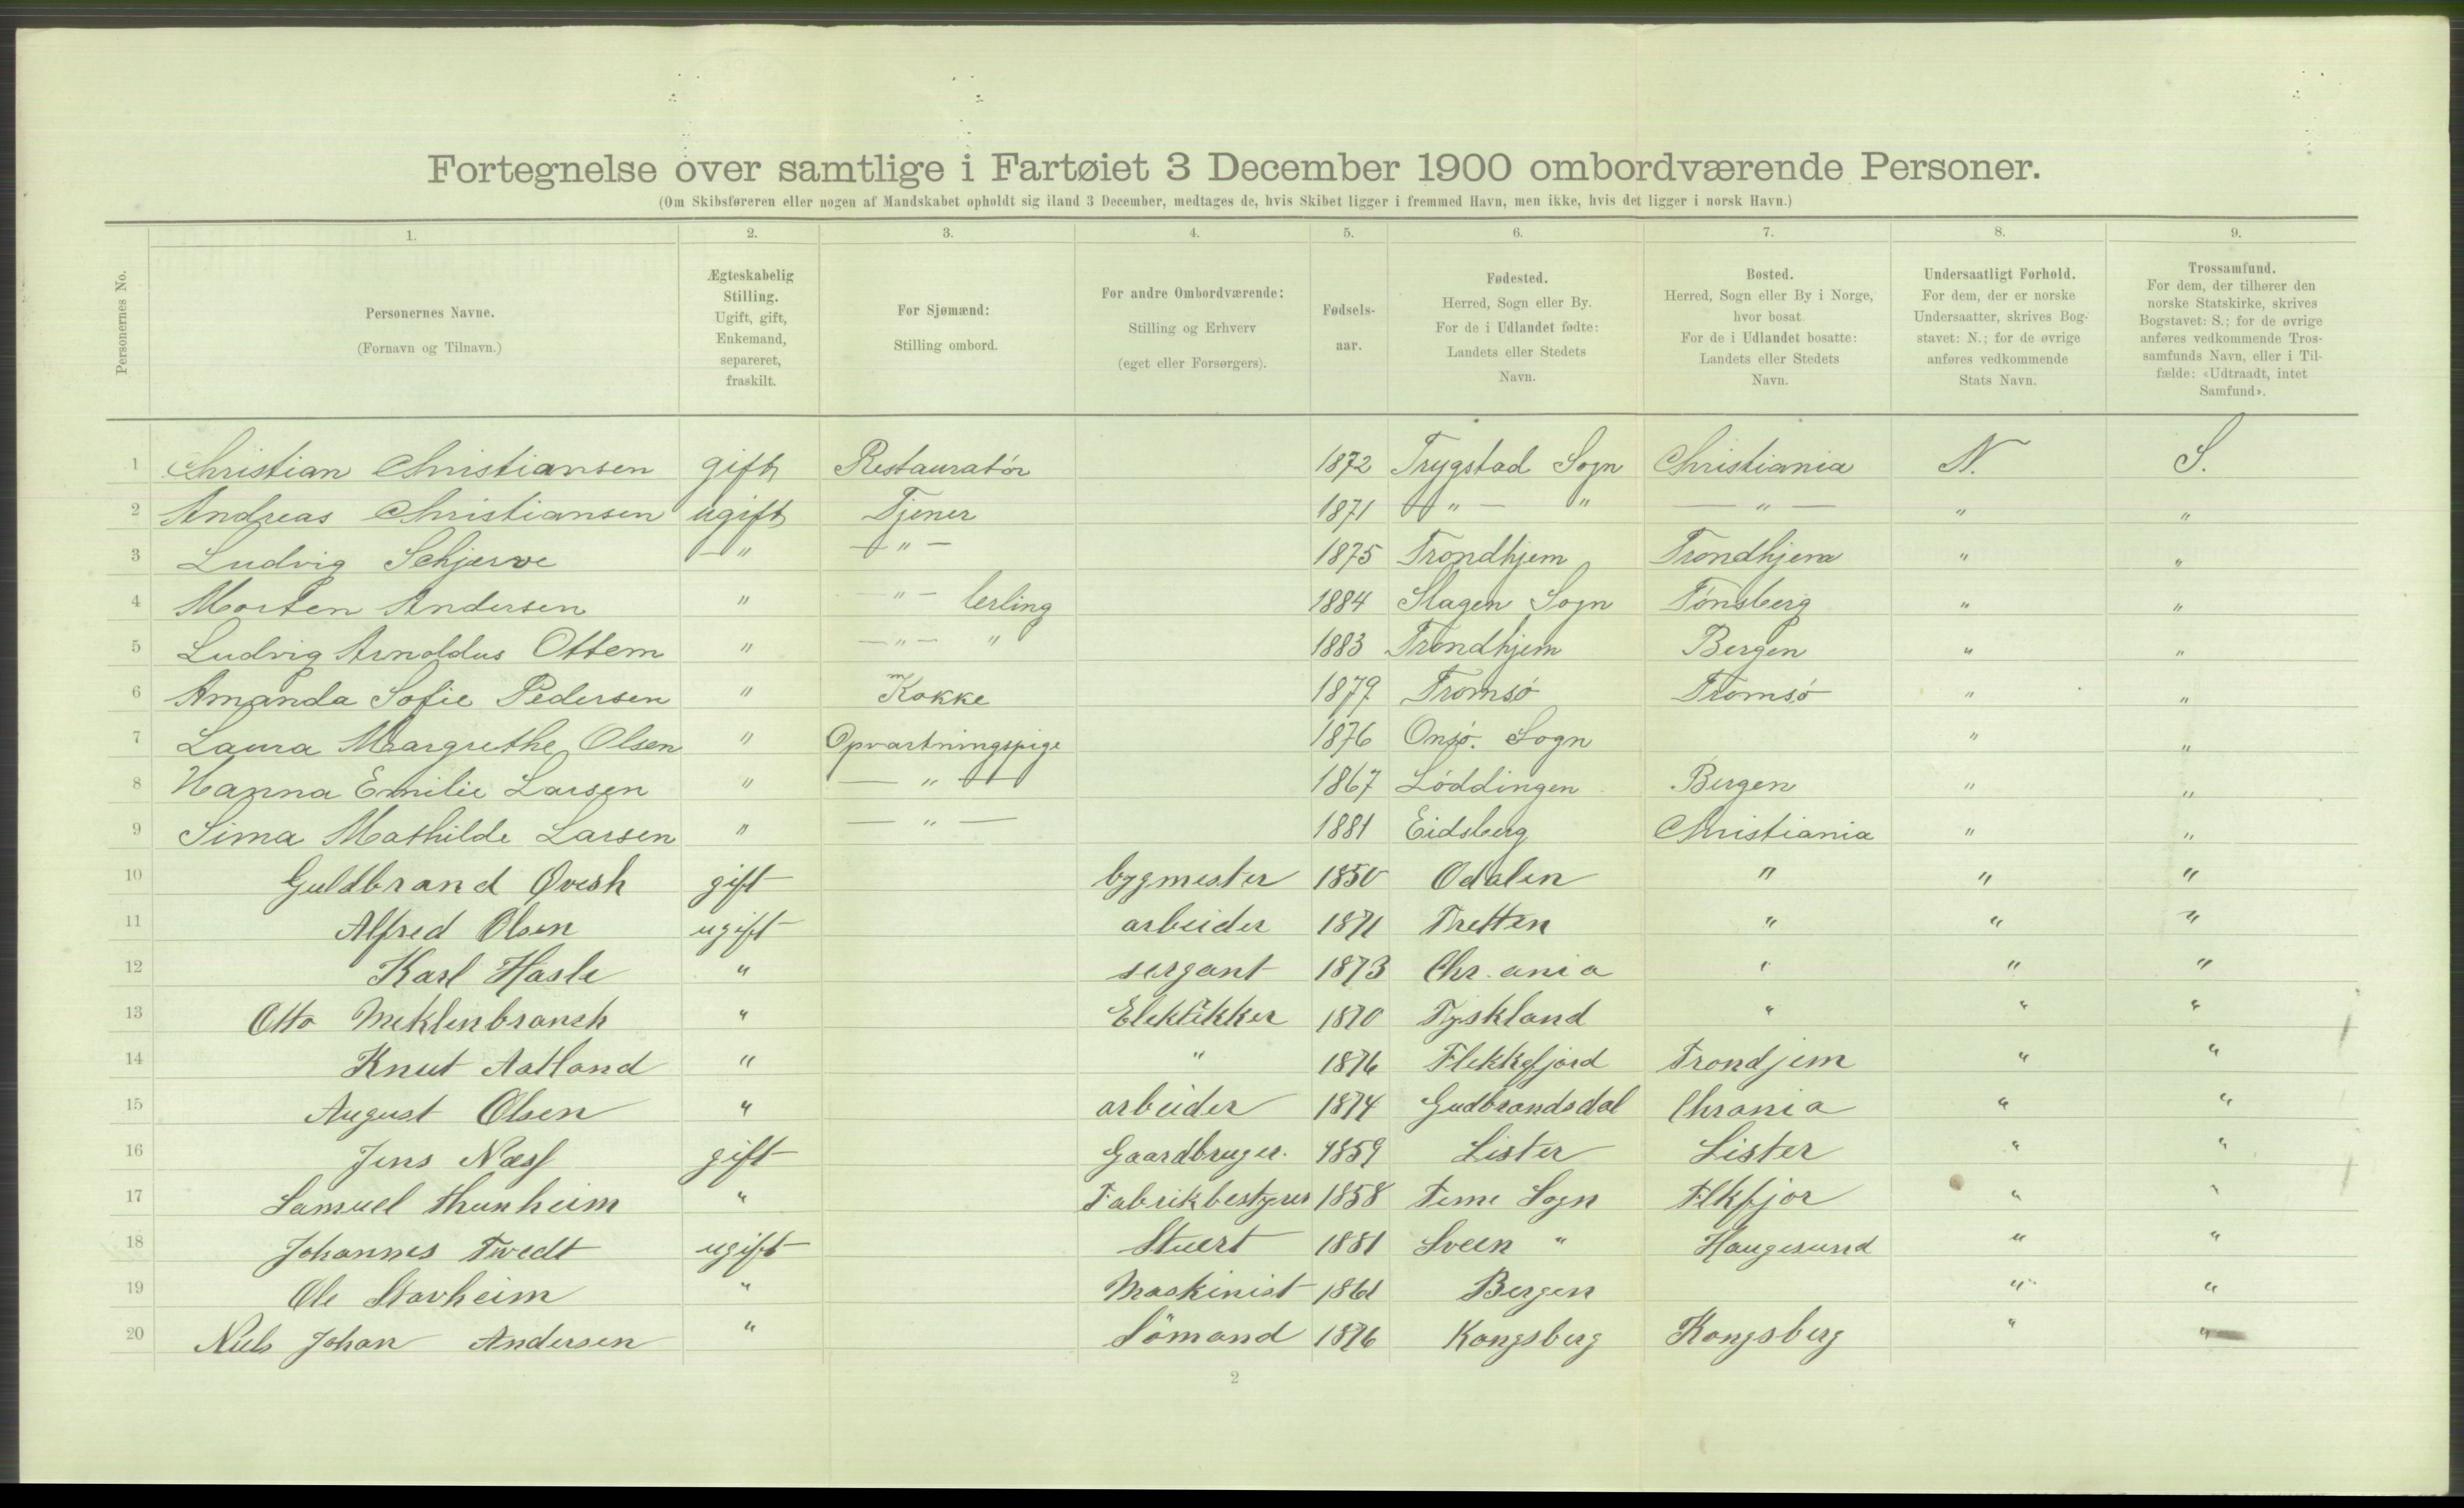 Fortegnelse over samtlige i Fartøiet 3 December 1900 ombordværende Personer.
(Om Skibsføreren eller nogen af Mandskabet opholdt sig iland 3 December, medtages de, hvis Skibet ligger i fremmed Havn, men ikke, hvis det ligger i norsk Havn.)
1. 2. 3. 4. 5. 6. 7. 8. 9.
Personernes No.
Personernes Navne.
(Fornavn og Tilnavn.)
Ægteskabelig
Stilling.
Ugift, gift,
Enkemand,
separeret,
fraskilt.
For Sjømænd:
Stilling ombord.
For andre Ombordværende:
Stilling og Erhverv
(eget eller Forsørgers).
Fødsels-
aar.
Fødested.
Herred, Sogn eller By.
For de i Udlandet fødte:
Landets eller Stedets
Navn.
Bosted.
Herred, Sogn eller By i Norge,
hvor bosat.
For de i Udlandet bosatte:
Landets eller Stedets
Navn.
Undersaatligt Forhold.
For dem, der er norske
Undersaatter, skrives Bog-
stavet: N.; for de øvrige
anføres vedkommende
Stats Navn.
Trossamfund.
For dem, der tilhører den
norske Statskirke, skrives
Bogstavet: S.; for de øvrige
anføres vedkommende Tros-
samfunds Navn, eller i Til-
fælde: «Udtraadt, intet
Samfund».
1 Christian Christiansen gift Restauratór 1872 Trygstad Sogn Christiania N. S.
2 Andreas Christiansen ugift Tjener 1871 — " — " — " — " "
3 Ludvig Schjerve — " — " — 1875 Trondhjem Trondhjem " "
4 Morten Andersen " — " — lerling 1884 Slagen Sogn Tónsberg " "
5 Ludvig Arnoldus Ottem " — " — " 1883 Trondhjem Bergen " "
6 Amanda Sofie Pedersen " Kokke 1879 Tromsó Tromsó " "
7 Laura Margrethe Olsen " Opvartningspige 1876 Onsó. Sogn " "
8 Hanna Emilie Larsen " — " — 1867 Lóddingen Bergen " "
9 Sima Mathilde Larsen " — " — 1881 Eidsberg Christiania " "
10 Guldbrand gift bygmester 1850 Odalen " " "
11 Alfred Olsen ugift arbeider 1871 Tretten " " "
12 Karl Hasle " sergant 1873 Chr. ania " " "
13 Otto " 1870 Tyskland " " "
14 Knut Aatland " " 1876 Flekkefjord Trondjem " "
15 August Olsen " arbeider 1874 Gudbrandsdal Chrania " "
16 Jens Næss gift Gaardbruger. 1859 Lister Lister " "
17 Samuel Thunheim " Fabrikbestyrer 1858 Time Sogn Flkfjor " "
18 Johannes Tvedt ugift Stuert 1881 Sveen " Haugesund " "
19 Ole Storheim " Maskinist 1861 Bergen " "
20 Niels Johan Andersen " Sömand 1876 Kongsberg Kongsberg " "
2